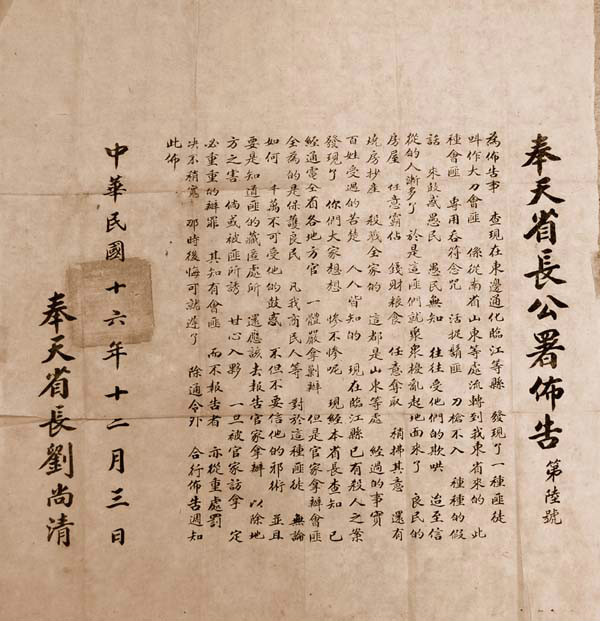 奉天省長公署佈告 第陸號
為佈告事 查現在東邊通化臨江等縣 發現了一種匪徒
呌作大刀會匪 係從南省山東等處流轉到我東省來的 此
種會匪 専用吞符念咒 活捉 匪 刀槍不入 種種的假
話 來鼓惑愚民 愚民無知 往往受他們的欺哄 迨至信
從的人漸多了 於是這匪們就聚衆擾亂起地面來了 良民的
房屋 任意霸佔 錢財粮食 任意奪取 稍拂其意 還有
燒房抄產 殺戮全家的 這都是山東等處 經過的事實
百姓受過的苦楚 人人皆知的 現在臨江縣已有殺人之案
發現了 你們大家想想 慘不慘呢 現經本省長查知 已
經通電全省各地方官 一體嚴拿剿辦 但是官家拿辦會匪
全為的是保護良民 凡我商民人等 對於這種匪徒 無論
如何 千萬不可受他的鼓惑 不但不要信他的邪術 並且
要是知道匪的藏匿處所 還應該去報告官家拿辦 以除地
方之害 倘或被匪所誘 甘心入夥 一旦被官家訪拿 定
必重重的辦罪 其知有會匪 而不報告者 亦從重處罰
决不稍寬 那時後悔可就遲了 除通令外 合行佈告週知
此佈
中華民國十六年十二月三日
奉天省長劉尚清